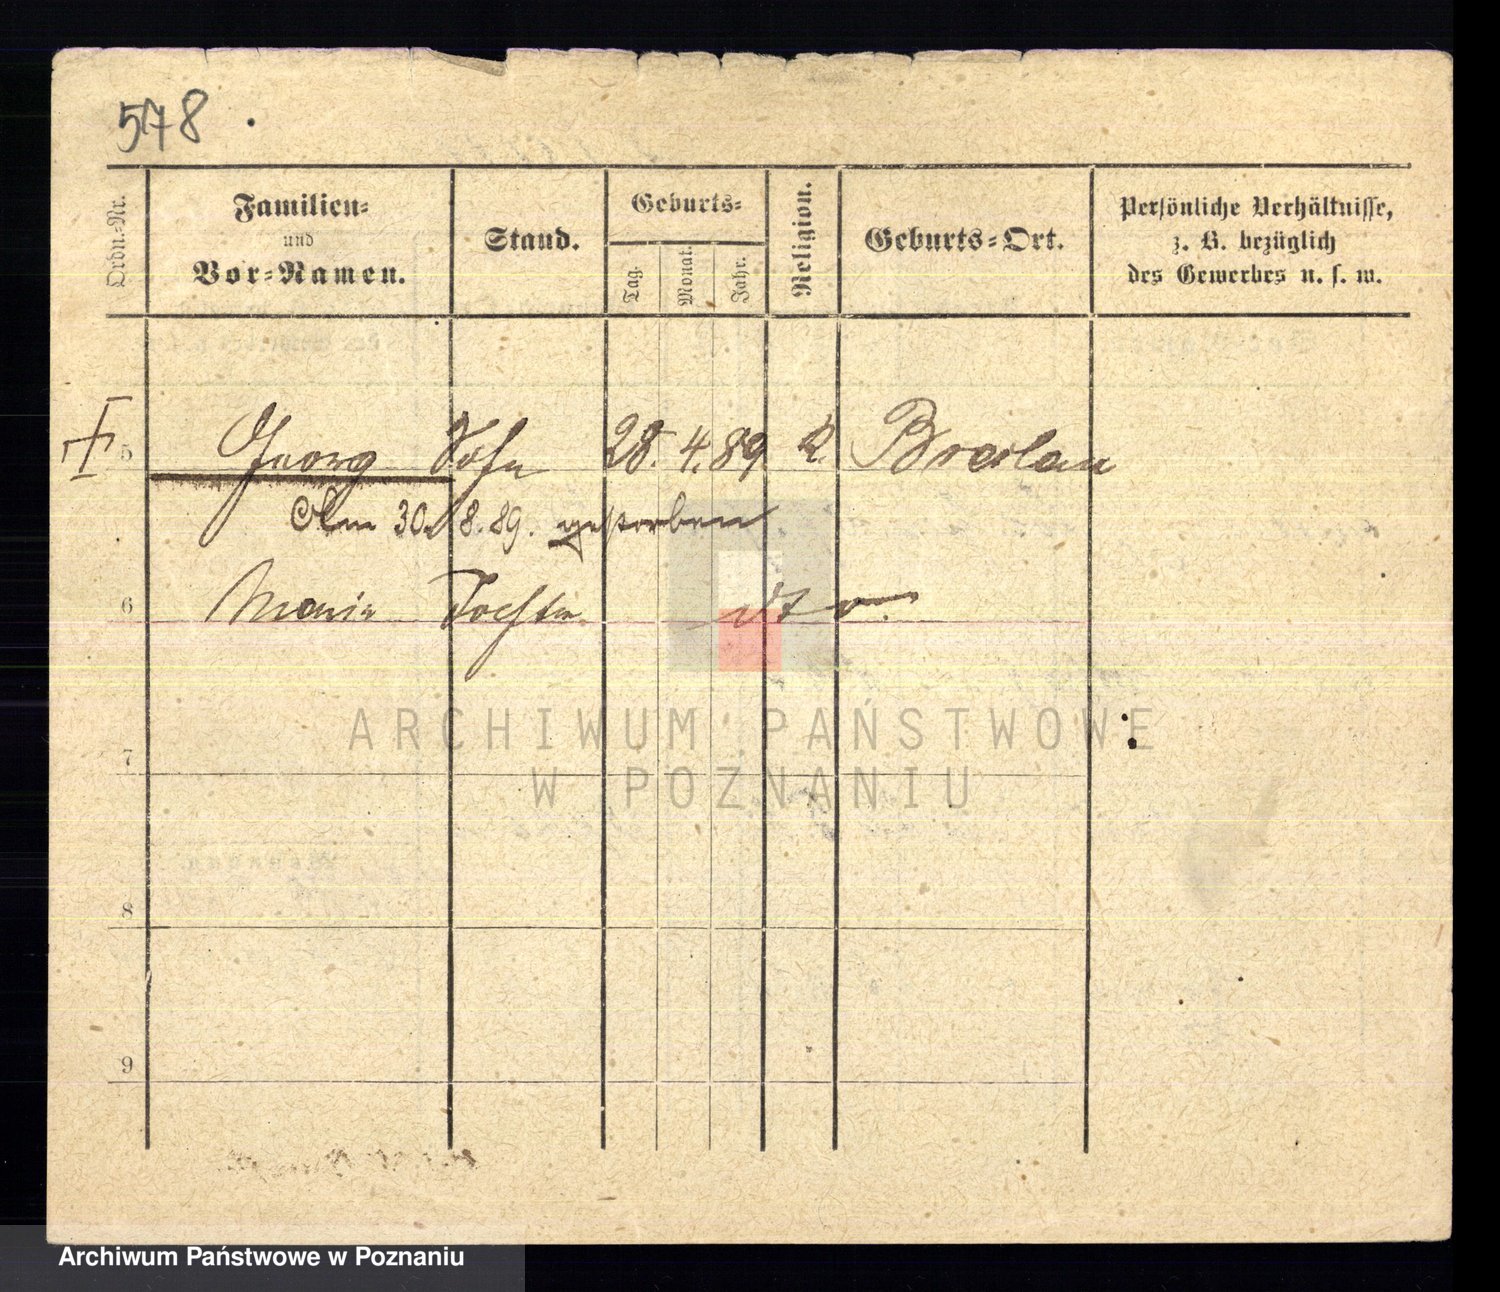 578
Ordn.-Nr.
Familien-
und
Vor-Namen.
Stand.
Geburts-
Tag.
Monat.
Jahr.
Religion.
Geburts-Ort.
Persönliche Verhältnisse,
z. B. bezüglich
des Gewerbes u. s. w.
5 Georg Sohn 28. 4. 89 K. Breslau
Am 30. 8. 89. gestorben
6 Maria Tochter dto.
ARCHIWUM PAŃSTWOWE
W POZNANIU
7
8
9
Archiwum Państwowe w Poznaniu